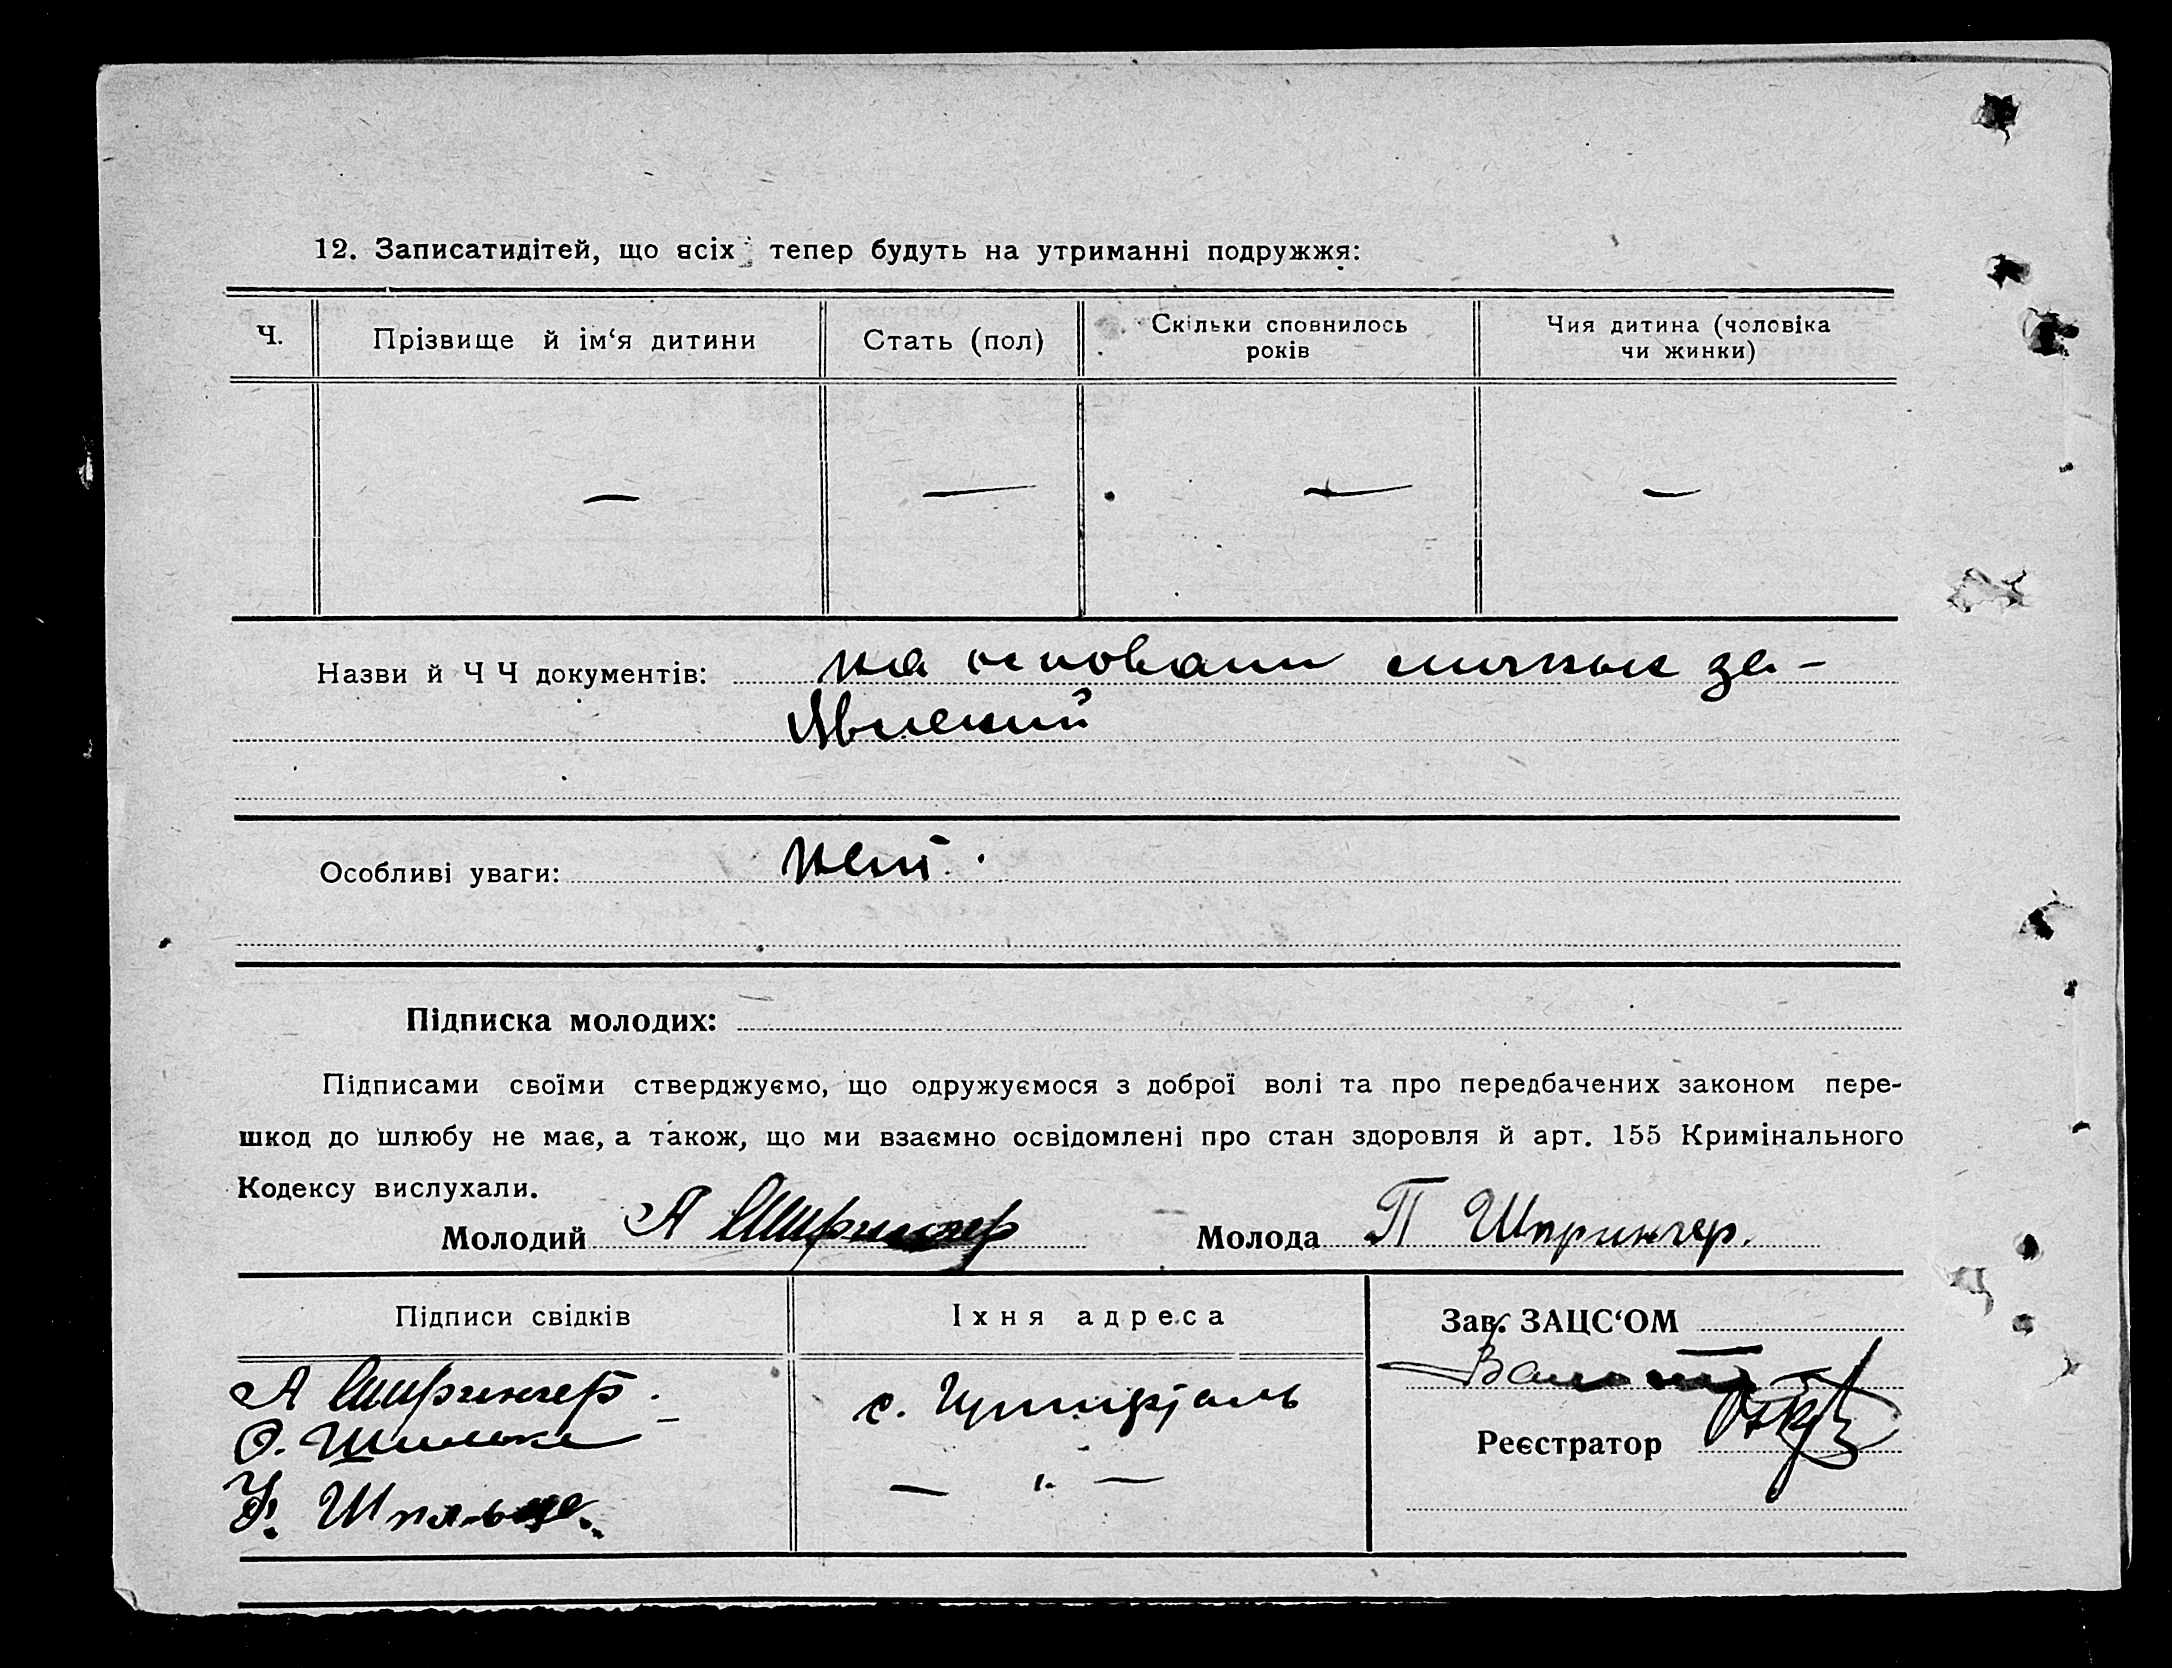 12. Записатидітей, що всіх тепер будуть на утриманні подружжя:
Ч.
Прізвище й ім‘я дитини
Стать (пол)
Скільки сповнилось
років
Чия дитина (чоловіка
чи жинки)
— — — —
Назви й Ч Ч документів: на основании личных за-
явлений
Особливі уваги: нет.
Підписка молодих:
Підписами своїми стверджуємо, що одружуємося з доброї волі та про передбачених законом пере-
шкод до шлюбу не має, а також, що ми взаємно освідомлені про стан здоровля й арт. 155 Кримінального
Кодексу вислухали.
Молодий А Шпрингер Молода П Шпрингер.
Підписи свідків
Іхня адреса
Зав. ЗАЦС‘ОМ
А Шпрингер.
О.
с.
Реєстратор
— " —